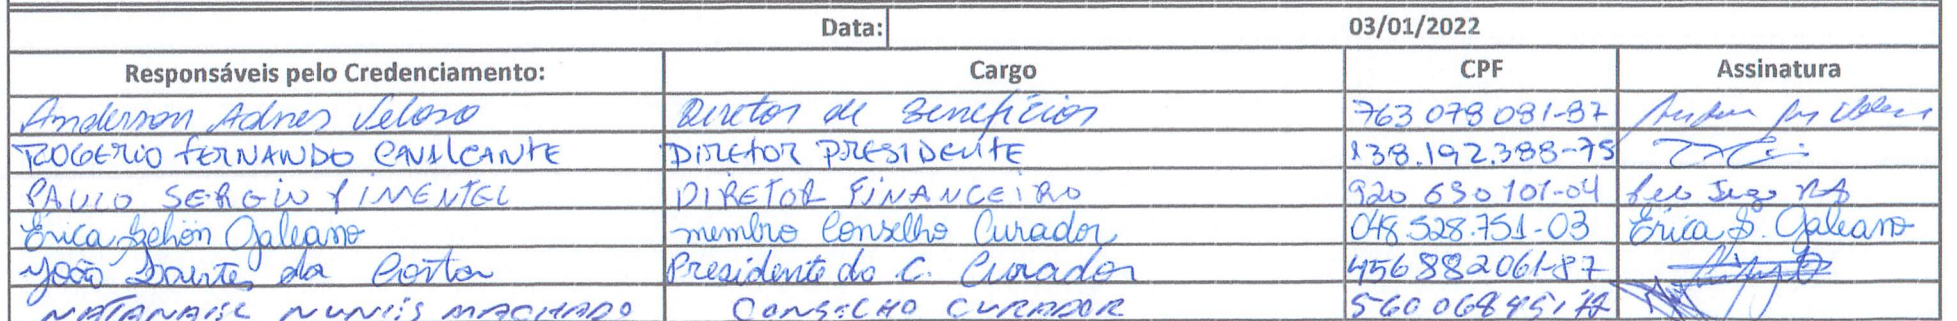 Data: 03/01/2022
Responsáveis pelo Credenciamento: Cargo CPF Assinatura
Anderson Adnes Veloso Diretor de Benefícios 763 078 081-87
ROGERIO FERNANDO CAVALCANTE DIRETOR PRESIDENTE 138.192.388-75
PAULO SERGIO PIMENTEL DIRETOR FINANCEIRO 920 630 101-04
Érica Schön Galeano membro Conselho Curador 048.528.751-03 Érica S. Galeano
João Dantes da Costa Presidente do C. Curador 456 882 061-87
NATANAEL NUNES MACHADO CONSELHO CURADOR